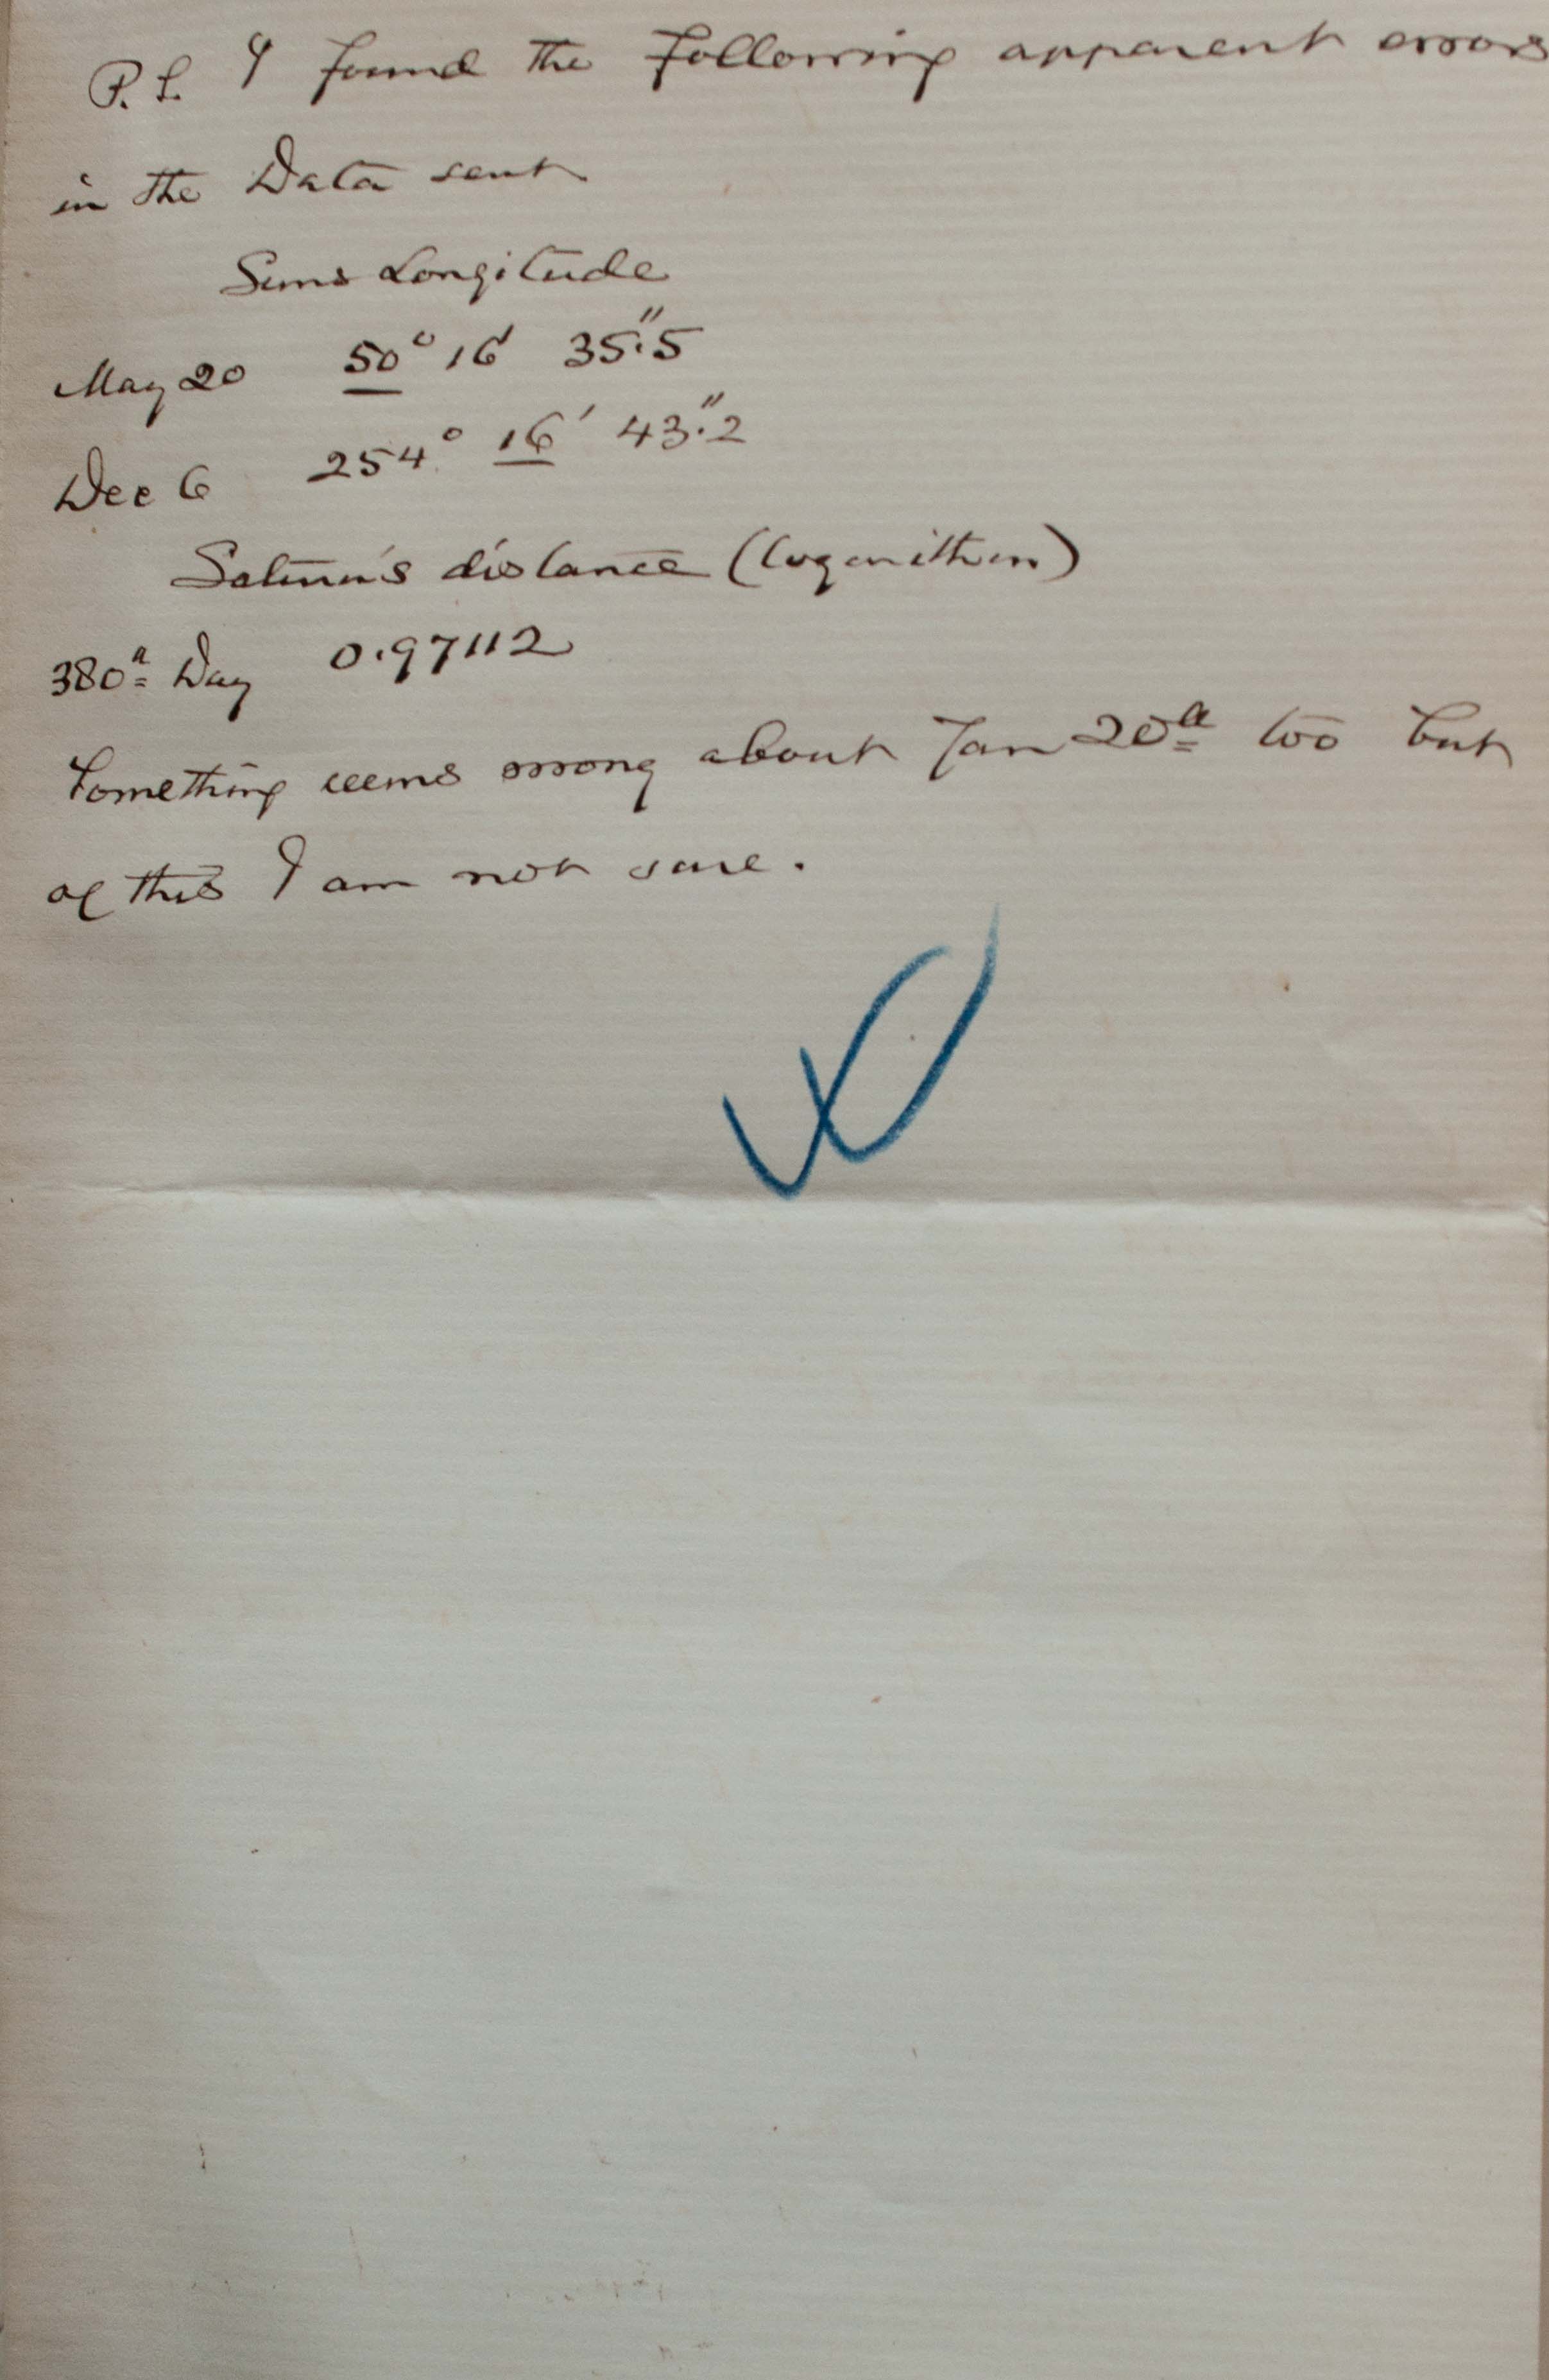 P.S. I found the following apparent errors
in the Data sent
Suns Longitude
May 20 50° 16' 35".5
Dec 6 254° 16' 43".2
Saturn's distance (logarithm)
380th Day 0.97112
Something seems wrong about Jan 20th too but
of this I am not sure.